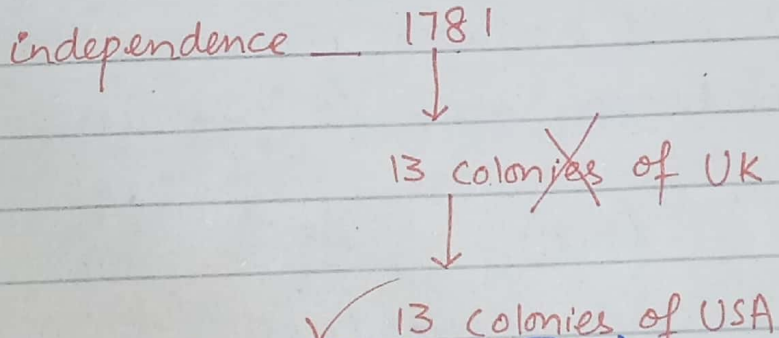 independence — 1781
13 colonies of UK
13 colonies of USA